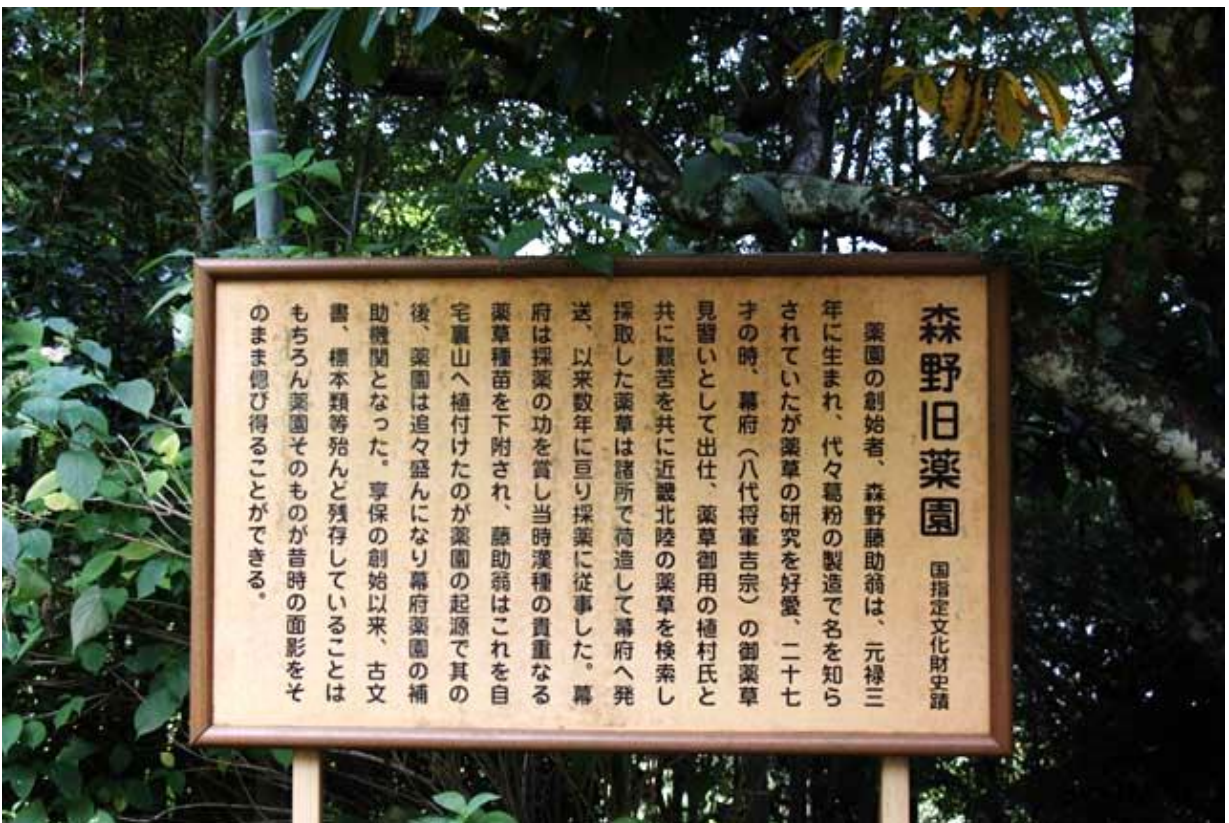 森野旧薬園 国指定文化財史蹟
薬園の創始者、森野藤助翁は、元禄三
年に生まれ、代々葛粉の製造で名を知ら
されていたが薬草の研究を好愛、二十七
才の時、幕府（八代将軍吉宗）の御薬草
見習いとして出仕、薬草御用の植村氏と
共に艱苦を共に近畿北陸の薬草を検索し
採取した薬草は諸所で荷造して幕府へ発
送、以来数年に亘り採薬に従事した。幕
府は採薬の功を賞し当時漢種の貴重なる
薬草種苗を下附され、藤助翁はこれを自
宅裏山へ植付けたのが薬園の起源で其の
後、薬園は追々盛んになり幕府薬園の補
助機関となった。享保の創始以来、古文
書、標本類等殆んど残存していることは
もちろん薬園そのものが昔時の面影をそ
のまま偲び得ることができる。